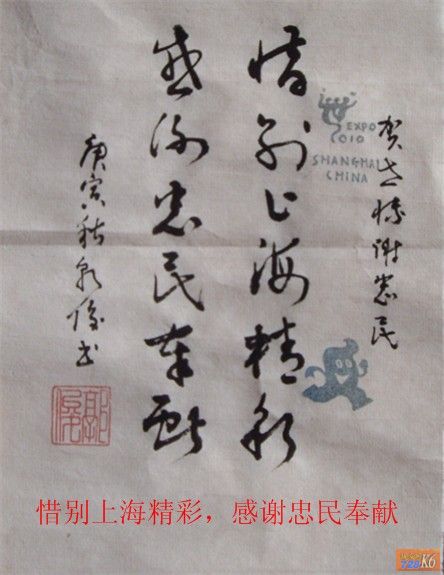 贺世博谢忠民
EXPO
2010
SHANGHAI
CHINA
惜别上海精彩
感谢忠民奉献
庚寅秋俊书
惜别上海精彩，感谢忠民奉献
728K6